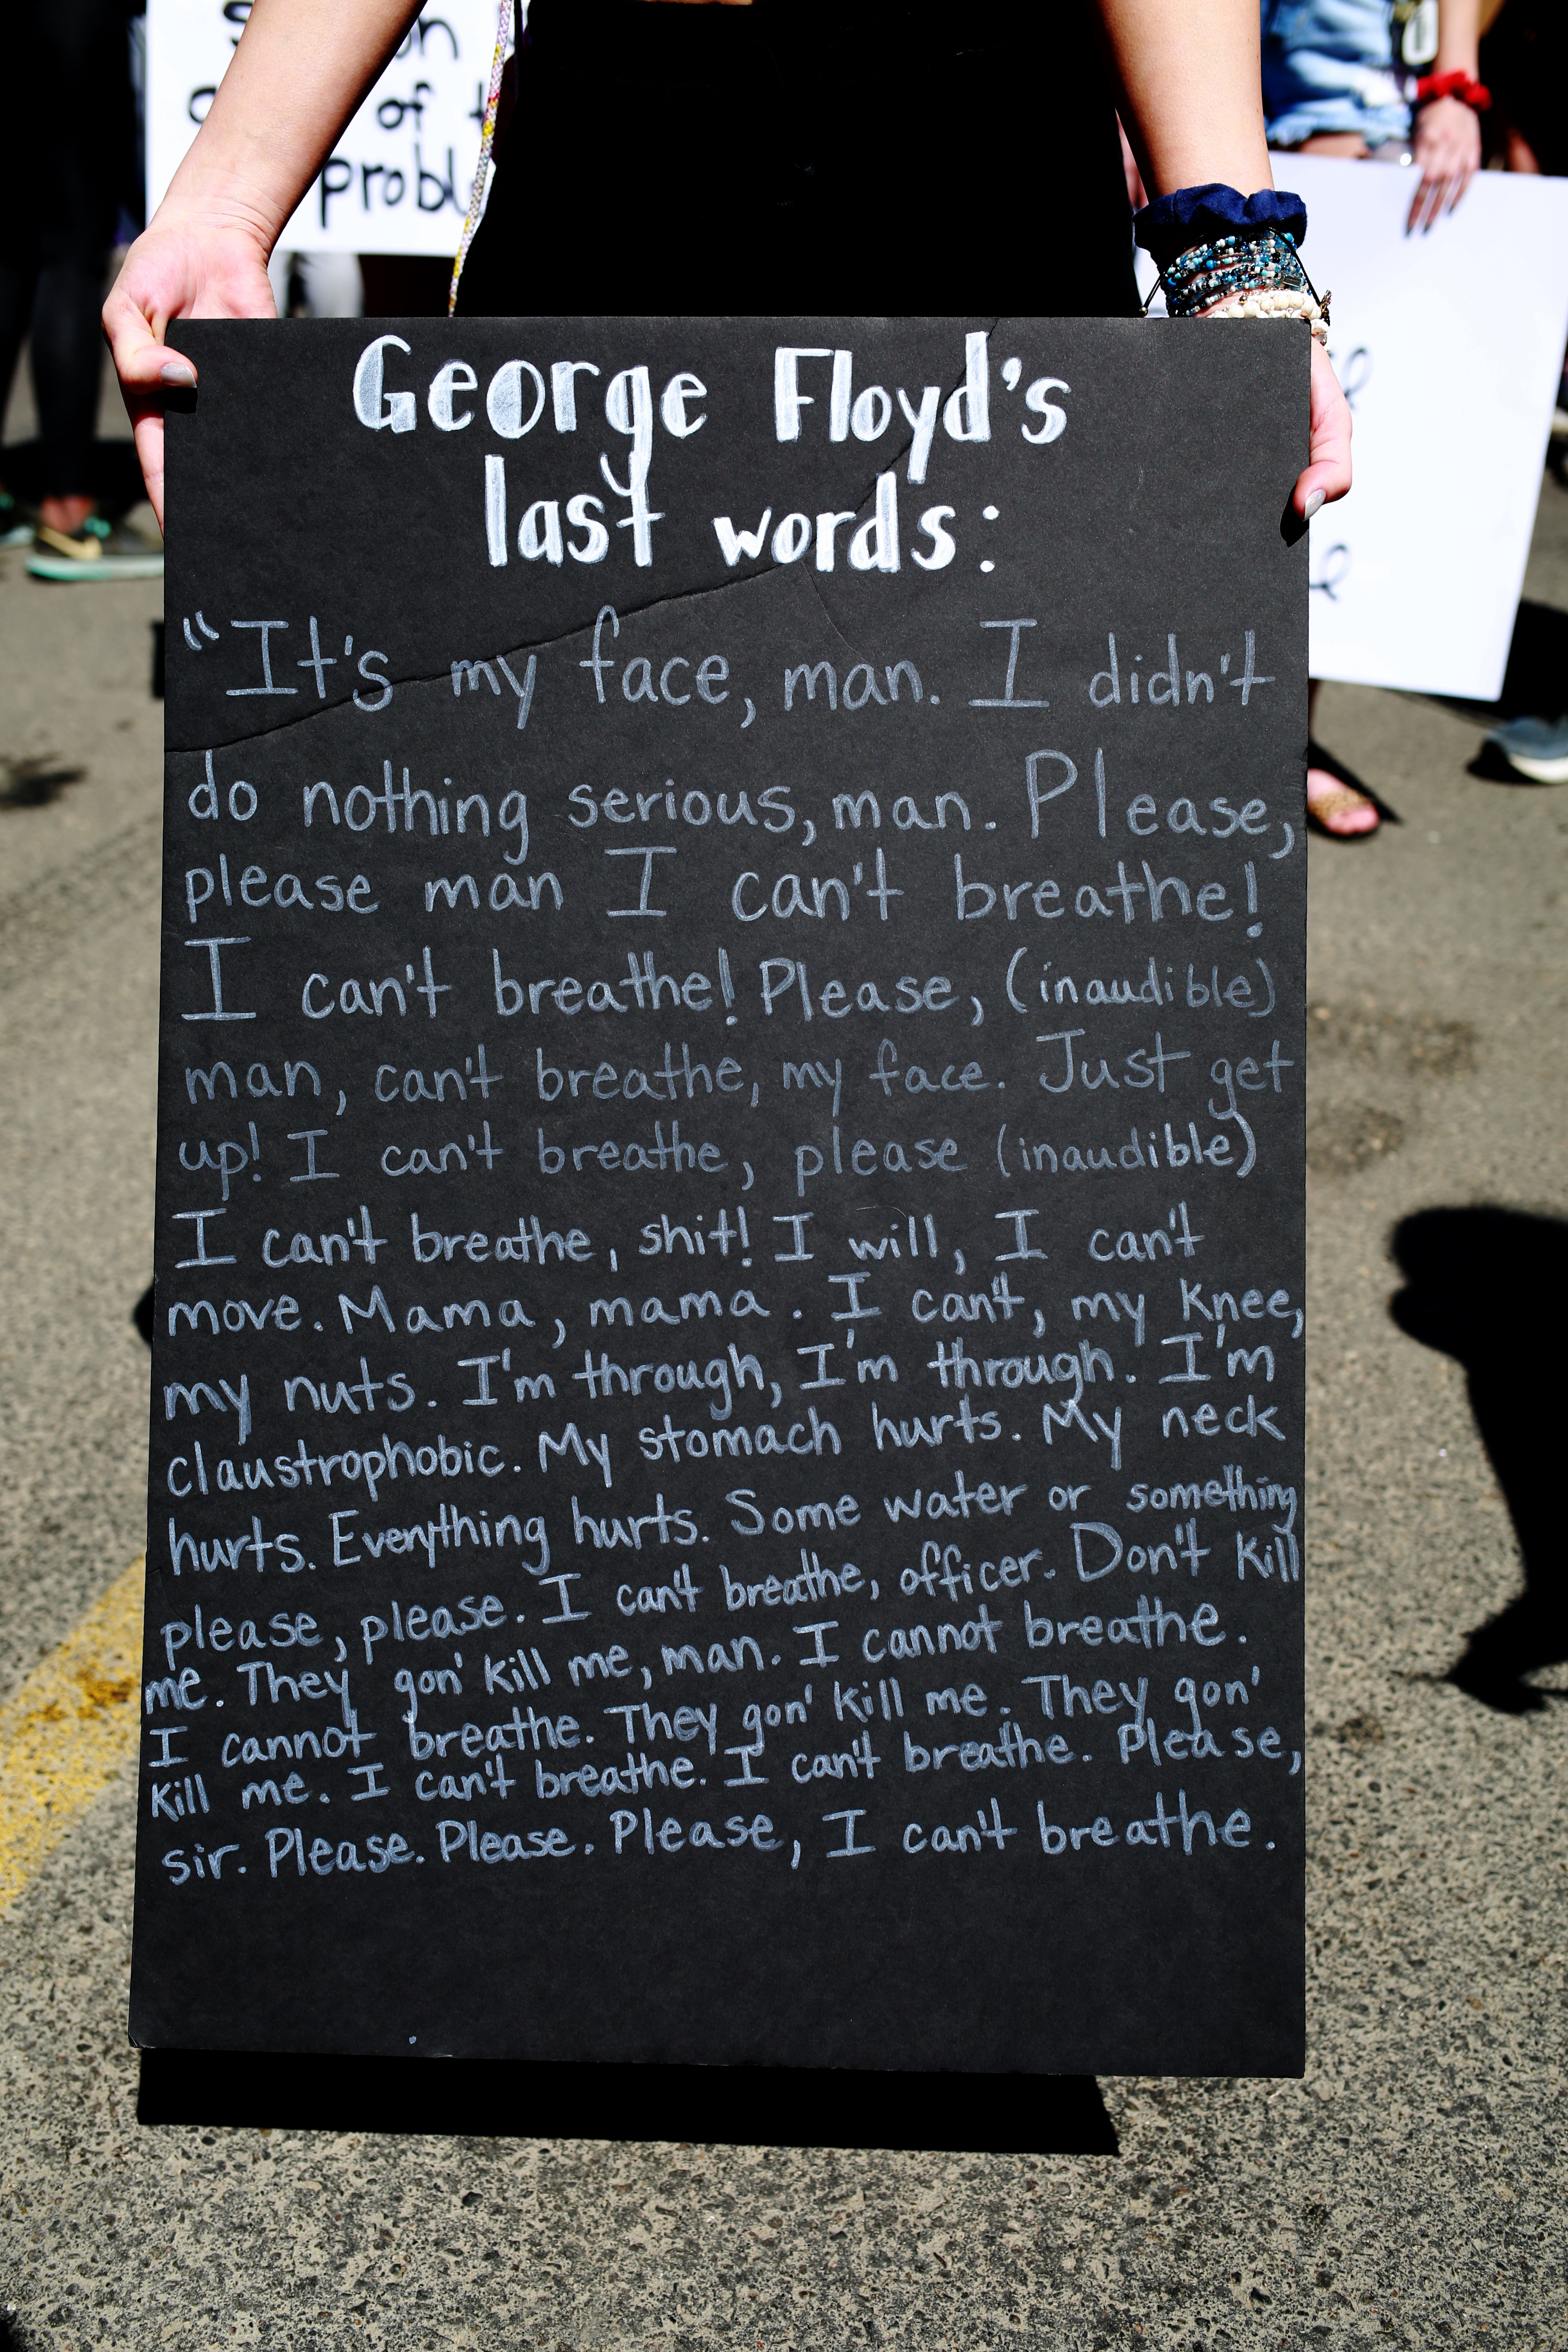 of
George Floyd's
last words:
"It's my face, man. I didn't
do nothing serious, man. Please,
please man I can't breathe!
I can't breathe! Please, (inaudible)
man, can't breathe, my face. Just get
up! I can't breathe, please (inaudible)
I can't breathe, shit! I will, I can't
move. Mama, mama. I can't, my knee,
my nuts. I'm through, I'm through. I'm
claustrophobic. My stomach hurts. My neck
hurts. Everything hurts. Some water or something
please, please. I can't breathe, officer. Don't kill
me. They gon' kill me, man. I cannot breathe.
I cannot breathe. They gon' kill me. They gon'
kill me. I can't breathe. I can't breathe. Please,
sir. Please. Please. Please, I can't breathe.